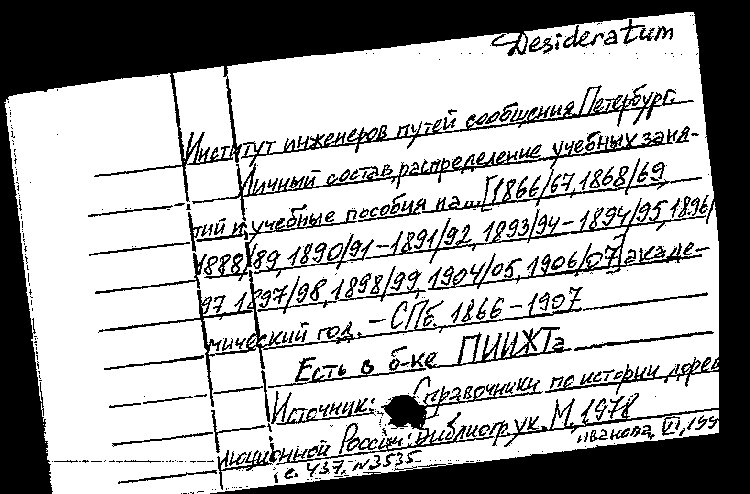 Desideratum
Институт инженеров путей сообщения. Петербург.
Личный состав, распределение учебных заня-
тий и учебные пособия на... [1866/67, 1868/69,
1888/89, 1890/91 - 1891/92, 1893/94 - 1894/95, 1896/
97, 1897/98, 1898/99, 1904/05, 1906/07] акаде-
мический год. - СПб, 1866 - 1907
Есть в б-ке ПИИЖТа
Источник: Справочники по истории дорев
люционной России: Библиогр. ук. М., 1978
с. 437, № 3535. Иванова, VI, 199